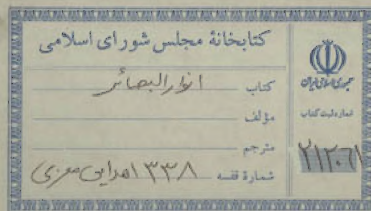 کتابخانهٔ مجلس شورای اسلامی
کتاب انوار البصائر
مؤلف
مترجم
شمارهٔ قفسه ۱۳۳۸ اهدایی معزی
جمهوری اسلامی ایران
شماره ثبت کتاب
۲۱۲۰۶۱